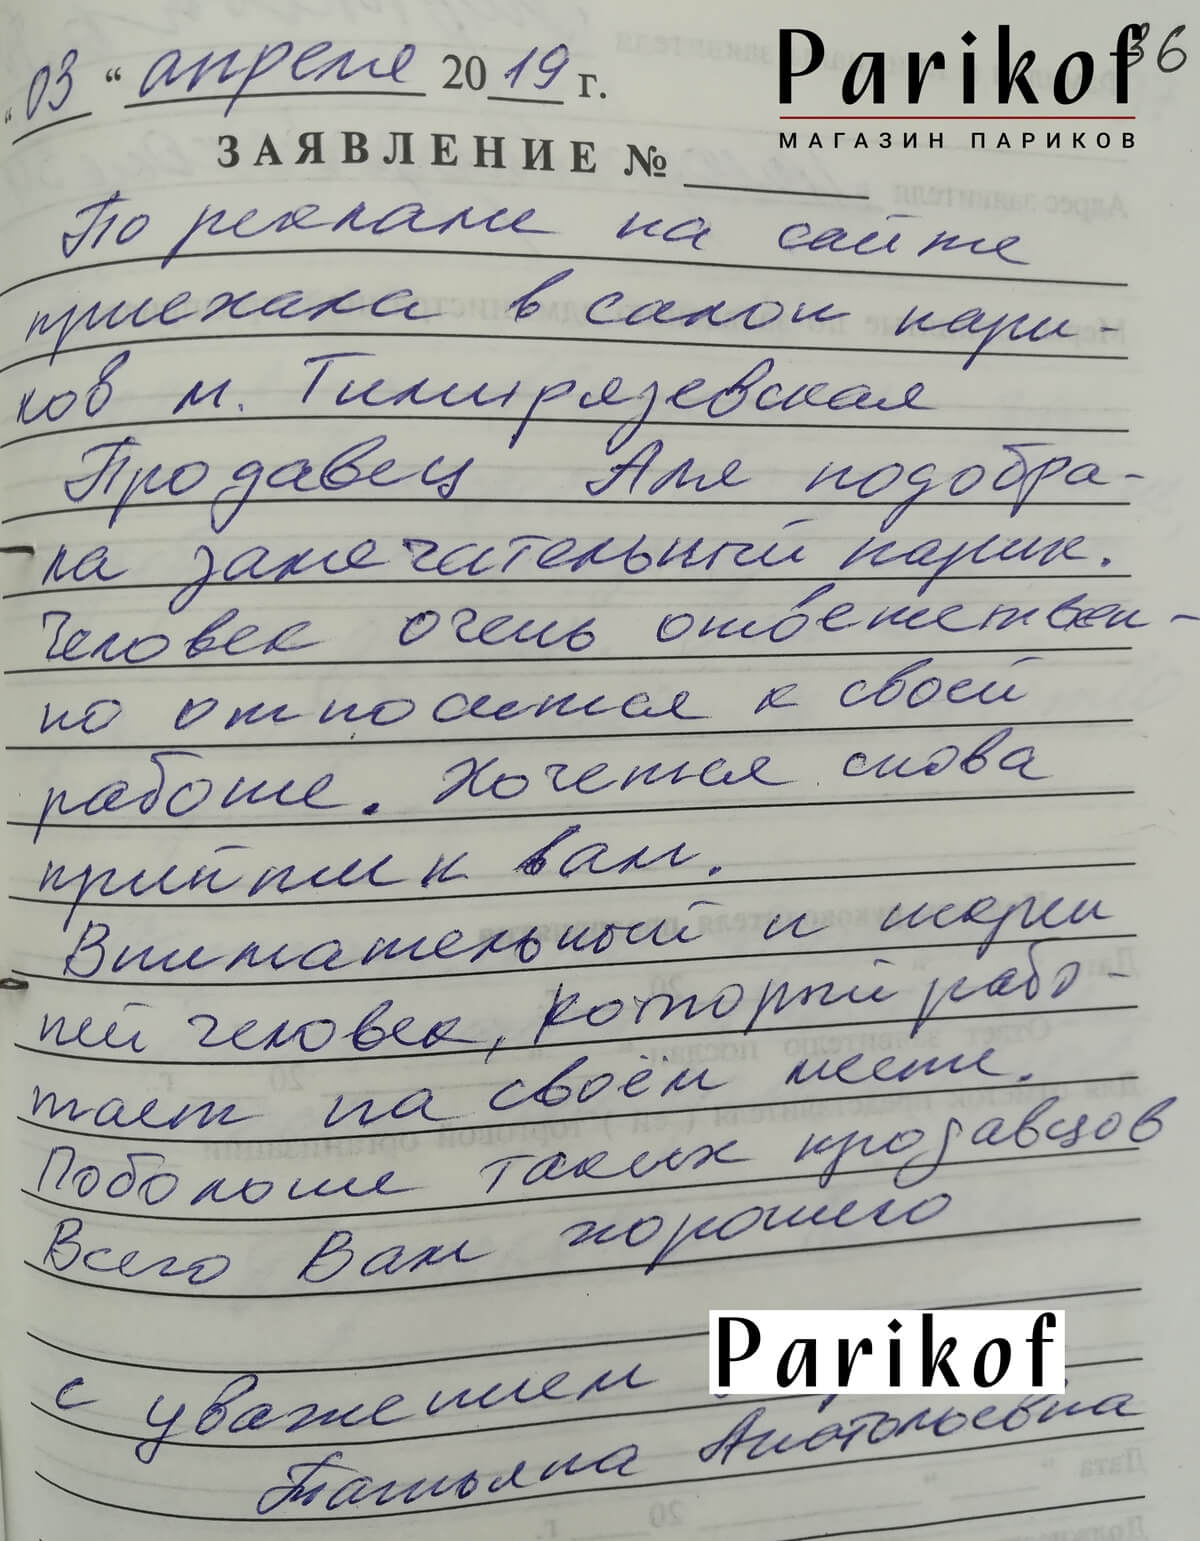 Parikof
МАГАЗИН ПАРИКОВ
36
"03" апреля 2019 г.
ЗАЯВЛЕНИЕ №
По рекламе на сайте
приехала в салон пари-
ков м. Тимирязевская
Продавец Аля подобра-
ла замечательный парик.
Человек очень ответствен-
но относится к своей
работе. Хочется снова
прийти к вам.
Внимательный и искрен
ний человек, который рабо-
тает на своём месте.
Побольше таких продавцов
Всего Вам хорошего
с уважением
Parikof
Татьяна Анатольевна